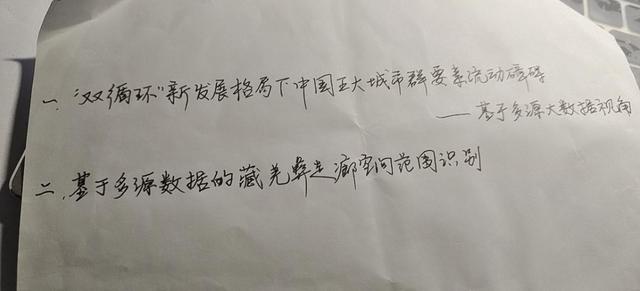 一、“双循环”新发展格局下中国五大城市群要素流动障碍
——基于多源大数据视角
二、基于多源数据的藏羌彝走廊空间范围识别